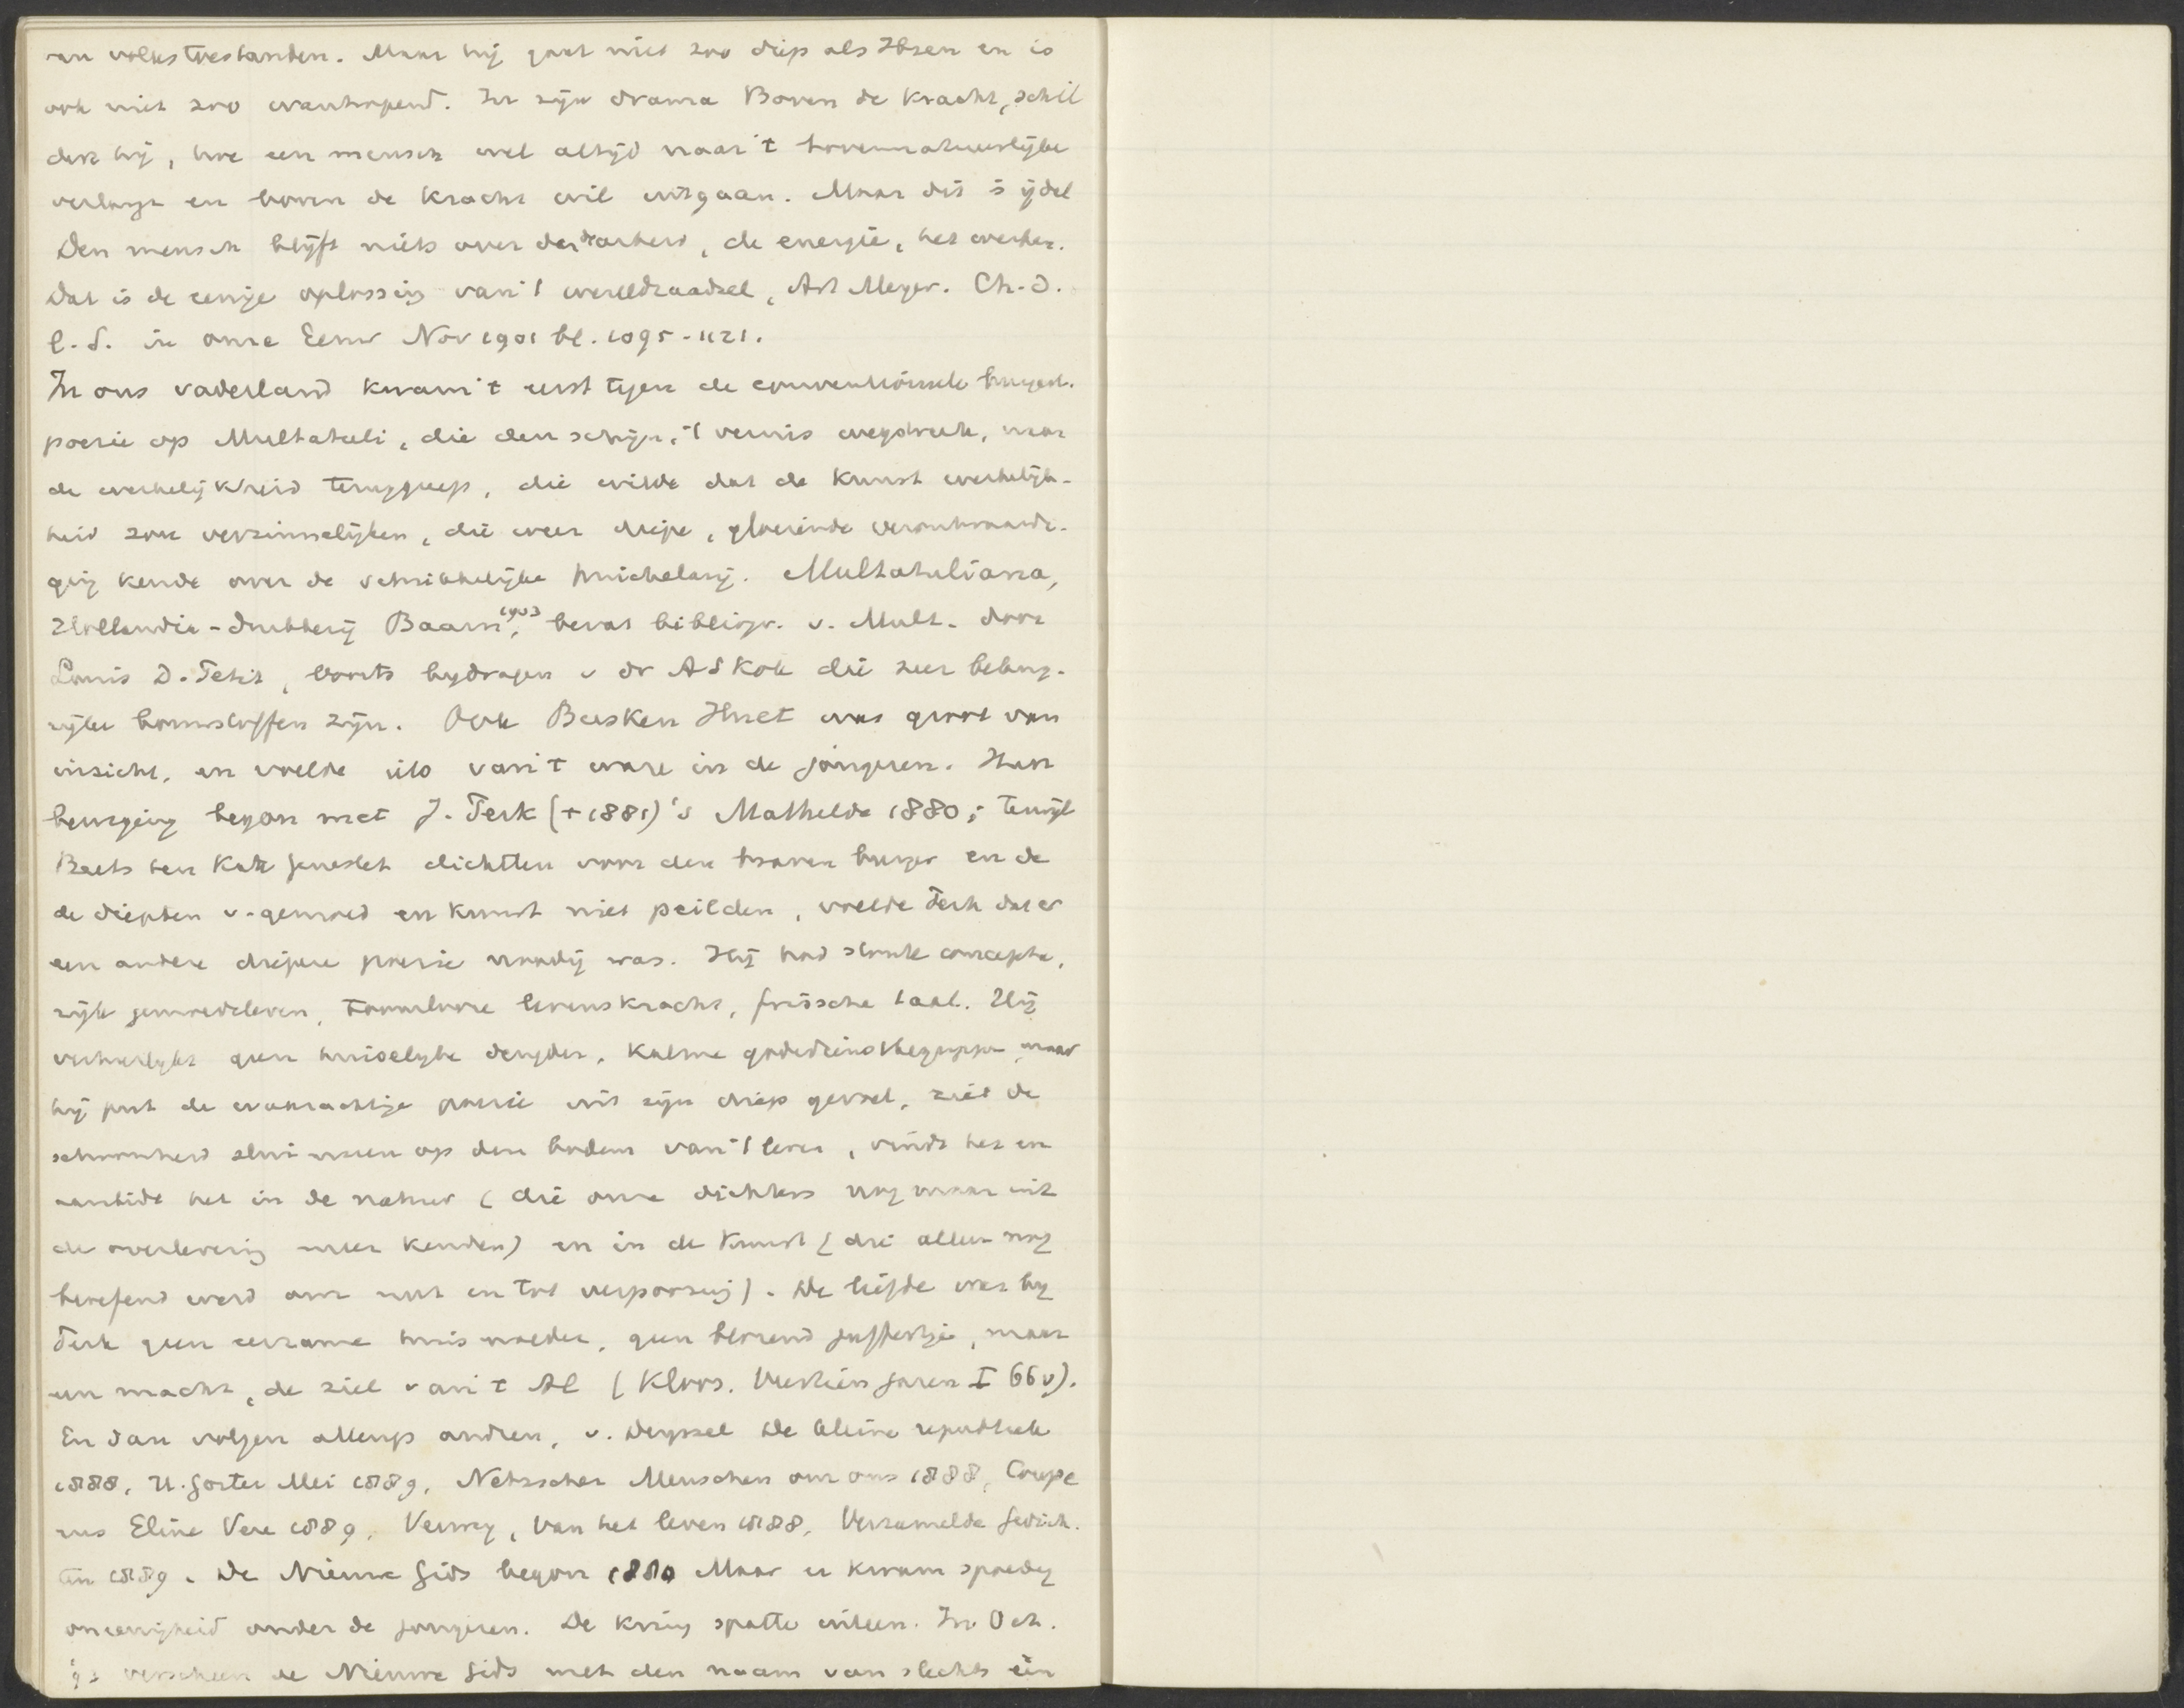 en volkstoestanden. Maar hij gaat niet zoo diep als Ibsen en is
ook niet zoo wanhopend. In zijn drama Boven de Kracht, schil
dert hij, hoe een mensch wel altijd naar 't bovennatuurlijke
verlangt en boven de Kracht wil uitgaan. Maar dit is ijdel
Den mensch blijft niets over dan d'arbeid, de energie, het werken.
Dat is de eenige oplossing van 't wereldraadsel, Art Meyer. Ch. d.
l. S. in Onze Eeuw Nov 1901 bl. 1095-1121.
In ons vaderland kwam 't eerst tegen de conventioneele burgerl.
poezie op Multatuli, die den schijn, 't vernis wegdreef, naar
de werkelijkheid teruggreep, die wilde dat de Kunst werkelijk-
heid zou verzinnelijken, die weer diepe, gloeiende verontwaardi-
ging kende over de schrikkelijke huichelarij. Multatuliana,
Hollandia-drukkerij Baarn, 1903 bevat bibliogr. v. Mult. door
Louis D. Petit, voorts bijdragen v dr AS Kok die zeer belang-
rijke bouwstoffen zijn. Ook Busken Huet was groot van
inzicht, en voelde iets van 't ware in de jongeren. Hun
beweging begon met J. Perk (+1881)'s Mathilde 1880; terwijl
Beets ten Kate Genestet dichtten voor den braven burger en de
de diepten v. gemoed en Kunst niet peilden, voelde Perk dat er
een andere diepere poezie noodig was. Hij had stoute conceptie,
rijk gemoedsleven, tooverlooze levenskracht, frissche taal. Hij
verheerlijkt geen huiselijke deugden, Kalme godsdienstbegrippen, maar
hij put de waarachtige poezie uit zijn diep gevoel, ziet de
schoonheid sluimeren op den bodem van 't leven, vindt het en
aanbidt het in de natuur (die onze dichters nog maar uit
de overlevering meer kenden) en in de Kunst (die alleen nog
beoefend werd om nut en tot verpoozing). De liefde was bij
Perk geen eerzame huismoeder, geen blozend juffertje, maar
een macht, de ziel van 't Al (Kloos. Veertien Jaren I 66v).
En dan volgen allengs andren, v. Deyssel De kleine republiek
1888, H. Gorter Mei 1889, Netscher Menschen om ons 1888, Coupe
rus Eline Vere 1889, Verwey, Van het leven 1888, Verzamelde Gedich-
ten 1889. De Nieuwe Gids begon 1880 Maar er kwam spoedig
oneenigheid onder de jongeren. De Kring spatte uiteen. In Oct.
verscheen de Nieuwe Gids met den naam van slechts één